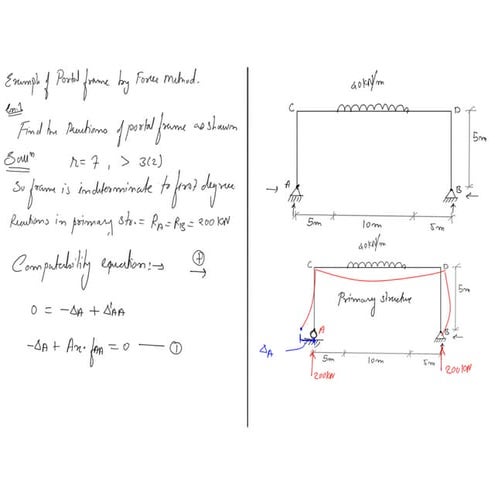 Example of Portal frame by Force Method.
Find the Reactions of portal frame as shown
Soluⁿ r = 7, > 3(2)
So frame is indeterminate to first degree
Reactions in primary Str. = RA = RB = 200 KN
Computability equation:→ + →
0 = -ΔA + Δ'AA
-ΔA + Ax. fAA = 0 — ①
40KN/m
C D
5m
A B
5m 10m 5m
40KN/m
C D
Primary structure
5m
A B
ΔA
5m 10m 5m
200KN 200KN